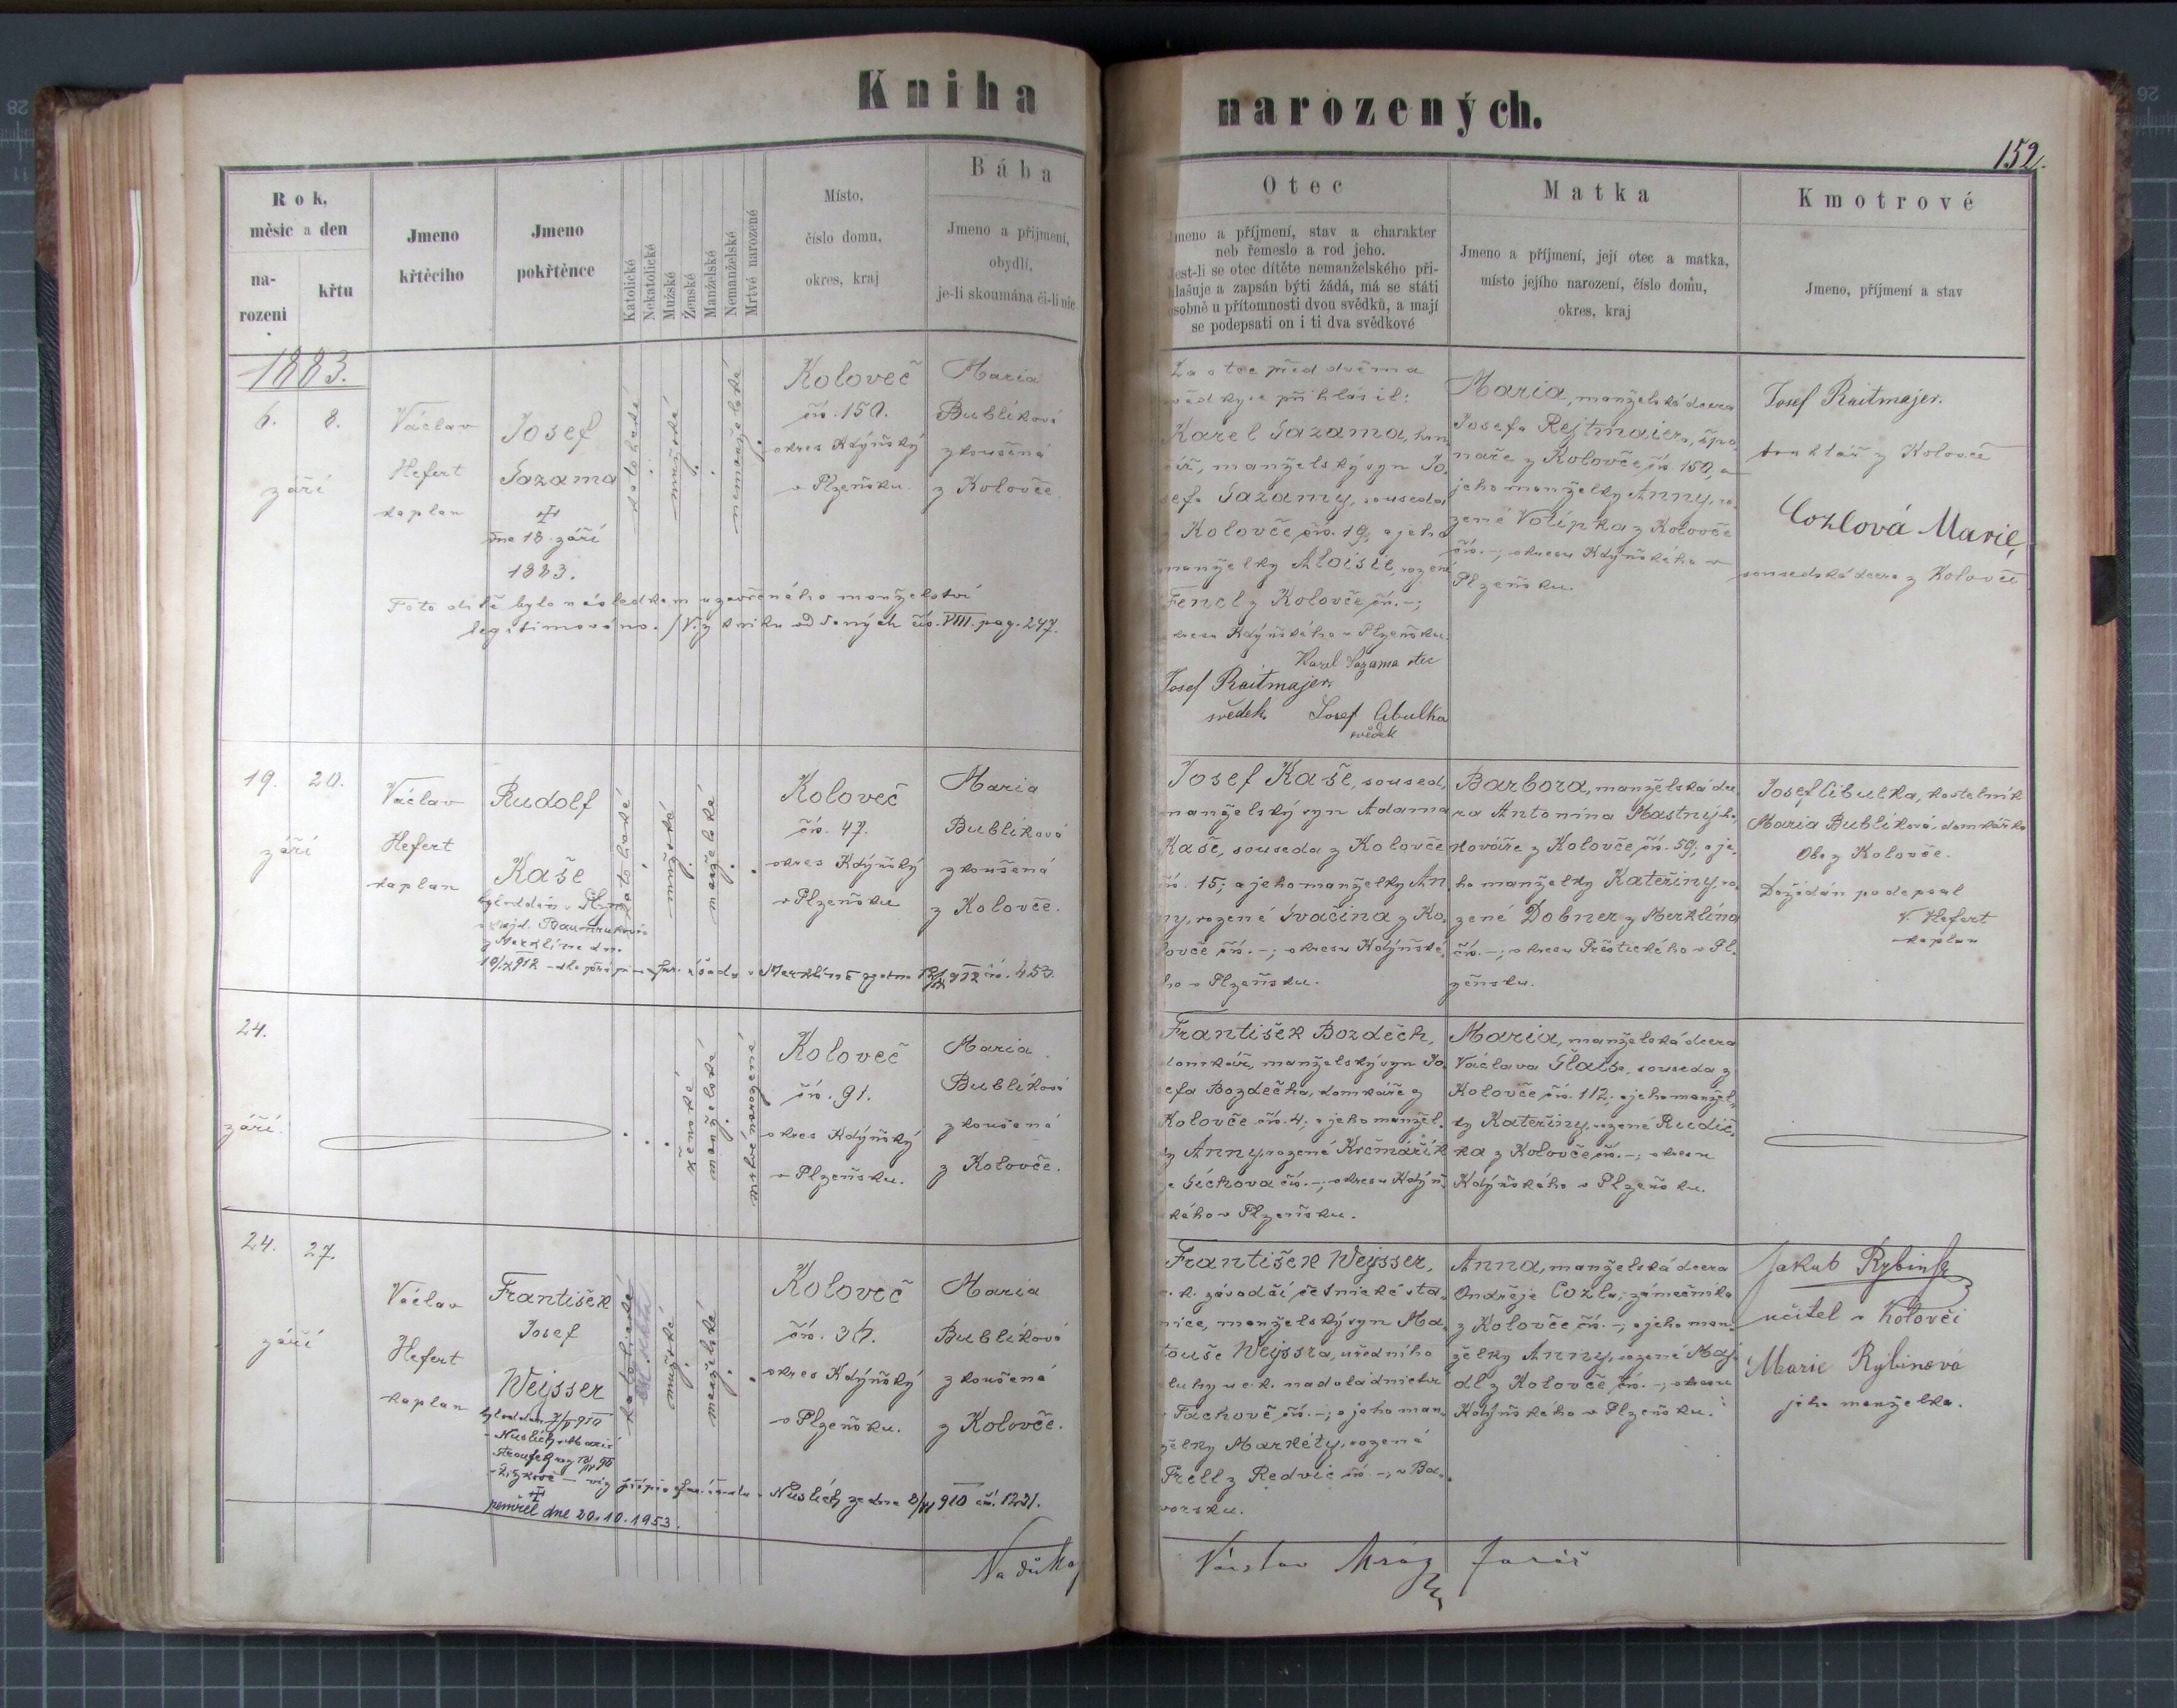 Kniha
narozených.
152.
Rok,
měsíc a den
na-
rozeni
křtu
Jmeno
křtěcího
Jmeno
pokřtěnce
Katolické
Nekatolické
Mužské
Ženské
Manželské
Nemanželské
Mrtvě narozené
Místo,
číslo domu,
okres, kraj
Bába
Jmeno a příjmení,
obydlí,
je-li skoumána či-li nic
Otec
Jmeno a příjmení, stav a charakter
neb řemeslo a rod jeho.
Jest-li se otec dítěte nemanželského při-
hlašuje a zapsán býti žádá, má se státi
osobně u přítomnosti dvou svědků, a mají
se podepsati on i ti dva svědkové
Matka
Jmeno a příjmení, její otec a matka,
místo jejího narození, číslo domu,
okres, kraj
Kmotrové
Jmeno, příjmení a stav
1883.
6. 8.
září
Václav
Hefert
kaplan
Josef
Sazama
dne 18. září
1883.
katolické
mužské
nemanželské
Koloveč
čís. 150.
okres Kdýňský
v Plzeňsku.
Maria
Bublíková
zkoušená
z Kolovče.
Toto dítě bylo následkem uzavřeného manželství
legitimováno. /Viz knihu oddaných čís. VIII. pag. 247.
Za otce před dvěma
svědky se přihlásil:
Karel Sazama, hrn
číř, manželský syn Jo-
sefa Sazamy, souseda
z Kolovče čís. 19, a jeho
manželky Aloisie, rozené
Fencl z Kolovče čís. -;
okresu Kdýňského v Plzeňsku.
Karel Sazama otec
Josef Raitmajer.
svědek. Josef Cibulka
svědek
Maria, manželská dcera
Josefa Rejtmaiera, špo-
naře z Kolovče čís. 150, a
jeho manželky Anny, ro-
zené Volipka z Kolovče
čís. -; okresu Kdýňského v
Plzeňsku.
Josef Raitmajer.
truhlář z Kolovče
Cozlová Marie,
sousedská dcera z Kolovče
19. 20.
září
Václav
Hefert
kaplan
Rudolf
Kaše
katolické
mužské
manželské
Koloveč
čís. 47.
okres Kdýňský
v Plzeňsku
Maria
Bublíková
zkoušená
z Kolovče.
z Merklína dne
Josef Kaše, soused,
manželský syn Adama
Kaše, souseda z Kolovče
čís. 15; a jeho manželky An
ny, rozené Svačina z Ko-
lovče čís. -; okresu Kdýňské-
ho v Plzeňsku.
Barbora, manželská dce-
ra Antonína Mastnýho,
kováře z Kolovče čís. 59; a je-
ho manželky Kateřiny, ro-
zené Dobner z Merklína
čís. -; okresu Přeštického v Pl-
zeňsku.
Josef Cibulka, kostelník
Maria Bublíková, domkářka
Oba z Kolovče.
Dožádán podepsal
V. Hefert
kaplan
24.
září.
ženské
manželské
mrtvě narozené
Koloveč
čís. 91.
okres Kdýňský
v Plzeňsku.
Maria
Bublíková
zkoušená
z Kolovče.
František Bozděch,
domkář, manželský syn Jo-
sefa Bozděcha, domkáře z
Kolovče čís. 4; a jeho manžel-
ky Anny, rozené Krčmářík
ze Síchova čís. -; okresu Kdýň-
kého v Plzeňsku.
Maria, manželská dcera
Václava Šlaisa, souseda z
Kolovče čís. 112; a jeho manžel-
ky Kateřiny, rozené Rudič-
ka z Kolovče čís. -; okresu
Kdýňského v Plzeňsku.
24. 27.
září
Václav
Hefert
kaplan
František
Josef
Weysser
katolické
mužské
manželské
Koloveč
čís. 36.
okres Kdýňský
v Plzeňsku.
Maria
Bublíková
zkoušená
z Kolovče.
zemřel dne 20.10.1953.
František Weysser,
c. k. závodčí četnické sta-
nice, manželský syn Ma-
touše Weyssra, úředního
sluhy u c. k. nadoladnictví
v Tachově čís. -; a jeho man-
želky Markéty, rozené
Prell z Redvic čís. -; v Ba-
vorsku.
Anna, manželská dcera
Ondřeje Cozla, zámečníka
z Kolovče čís. -; a jeho man-
želky Anny, rozené Maj-
dl z Kolovče čís. -; okresu
Kdýňského v Plzeňsku.
Jakub Rybín
učitel v Kolovči
Marie Rybínová
jeho manželka.
Václav Mráz farář